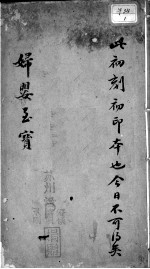 此初刻初印本也今日不可得矣
婦嬰至寶